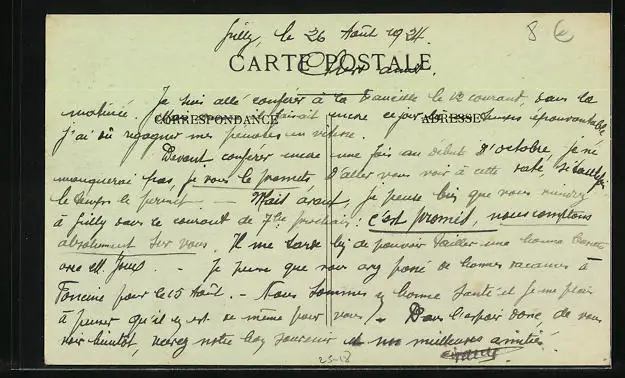 Gilly, le 26 Août 1924.
CARTE POSTALE
Cher ami
Je suis allé conférer à la Faucille le 12 courant, dans la
matinée. faisait encore ce jour un temps épouvantable
CORRESPONDANCE ADRESSE
j'ai dû regagner mes pénates en vitesse.
Devant conférer encore une fois au début d'octobre, je ne
manquerai pas, je vous le promets d'aller vous voir à cette date, si toutefois
le temps le permet. — Mais avant, je pense bien que vous viendrez
à Gilly dans le courant de 7bre prochain: c'est promis, nous comptons
absolument sur vous. Il me tarde de pouvoir tailler une bonne
avec M. — Je pense que vous avez passé de bonnes vacances à
Foncine pour le 15 Août. — Nous sommes en bonne santé et je me plais
à penser qu'il en est de même pour vous. — Dans l'espoir donc, de vous
voir bientôt, recevez notre bon souvenir et nos meilleures amitiés.
25-18
8